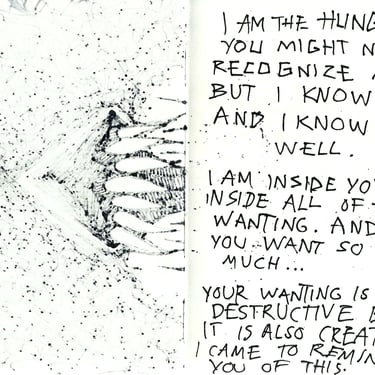 I AM THE HUNG
YOU MIGHT N
RECOGNIZE
BUT I KNOW
AND I KNOW
WELL.
I AM INSIDE YO
INSIDE ALL OF
WANTING. AND
YOU WANT SO
MUCH...
YOUR WANTING IS
DESTRUCTIVE B
IT IS ALSO CREAT
I CAME TO REMIN
YOU OF THIS.